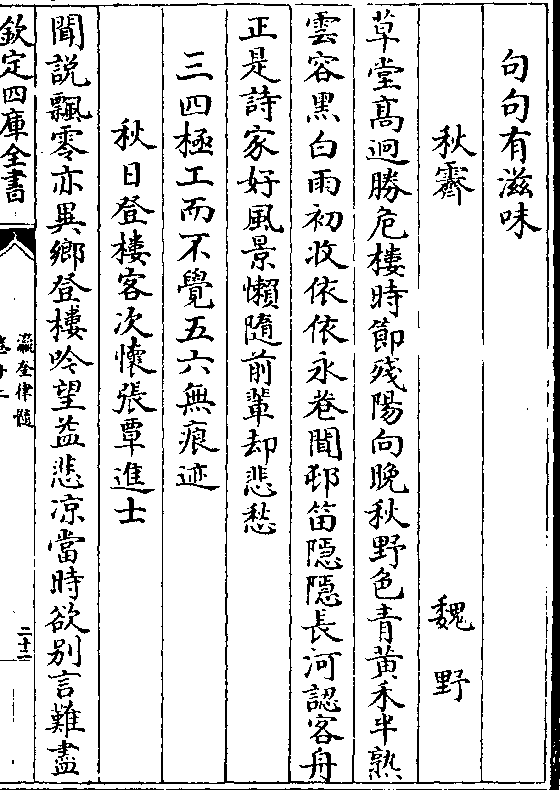 句句有滋味
秋霽　魏野
草堂髙迥勝危樓時節殘陽向晚秋野色青黃禾半熟
雲容黑白雨初收依依永巷聞邨笛隱隱長河認客舟
正是詩家好風景懶隨前輩却悲愁
三四極工而不覺五六無痕迹
秋日登樓客次懷張覃進士
聞説飄零亦異鄉登樓吟望益悲凉當時欲别言難盡
欽定四庫全書
瀛奎律髓
卷十二
二十二